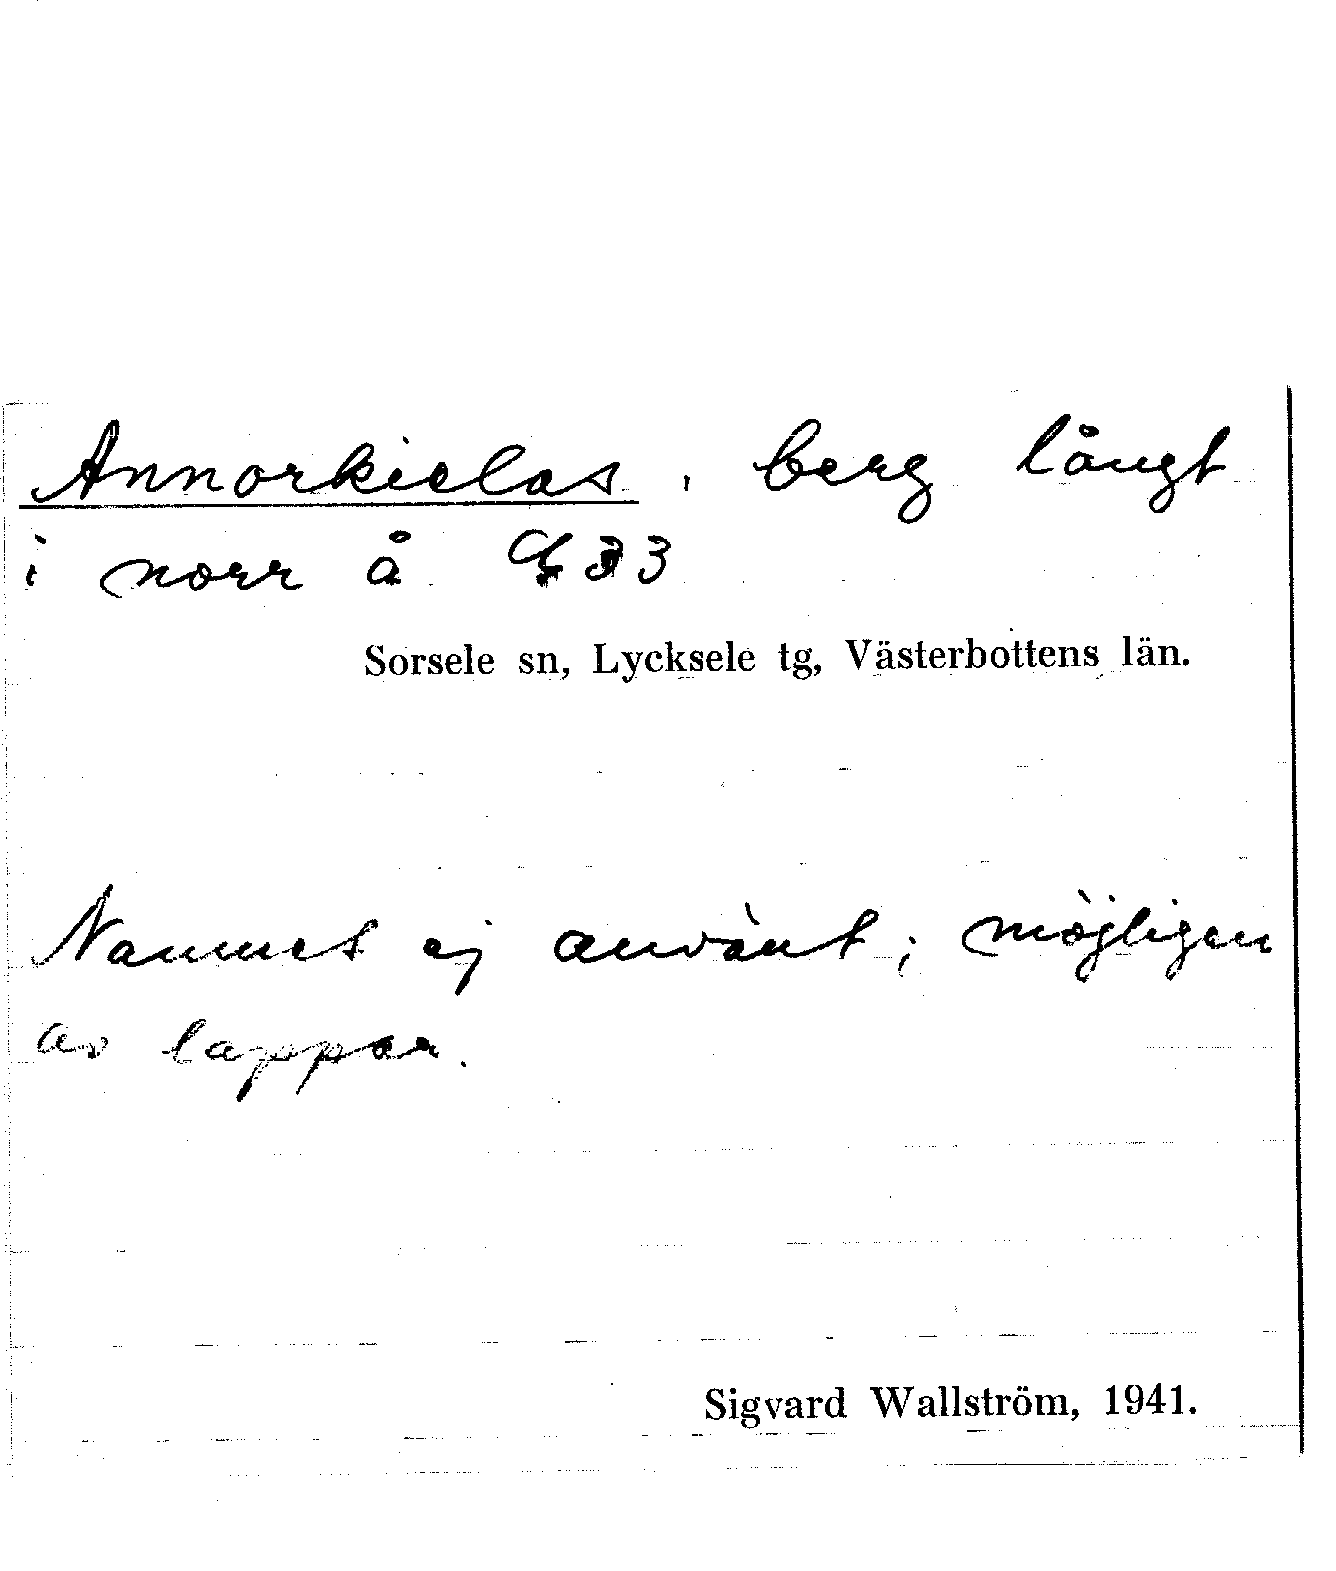 Annorkielas, berg långt
i norr å G33
Sorsele sn, Lycksele tg, Västerbottens län.
Namnet ej använt; möjligen
av lappar.
Sigvard Wallström, 1941.